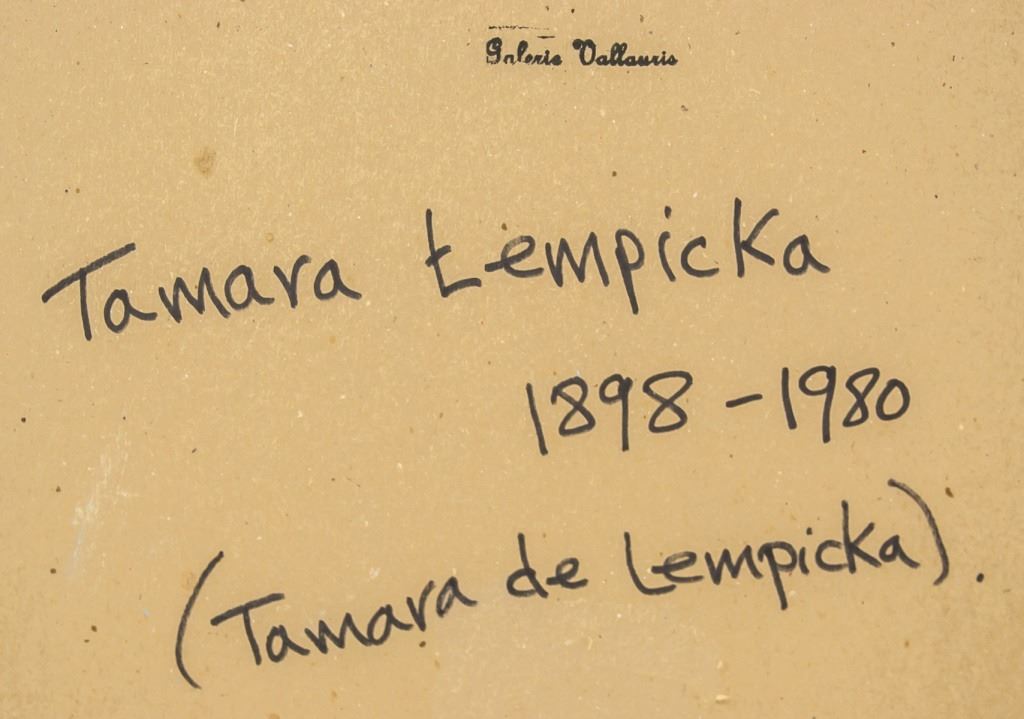 Galerie Vallauris
Tamara Łempicka
1898 - 1980
(Tamara de Lempicka).